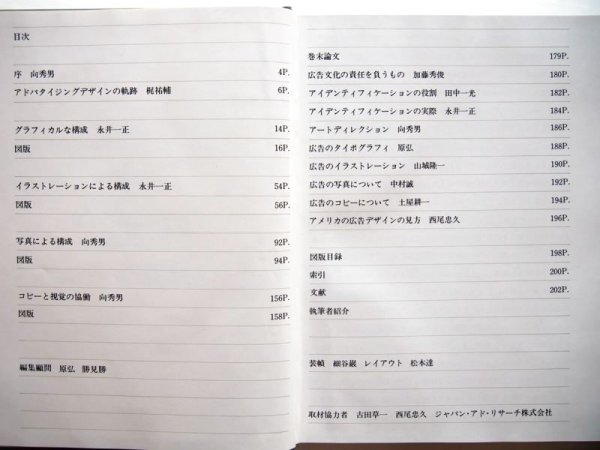 目次
序 向秀男 4P.
アドバタイジングデザインの軌跡 梶祐輔 6P.
グラフィカルな構成 永井一正 14P.
図版 16P.
イラストレーションによる構成 永井一正 54P.
図版 56P.
写真による構成 向秀男 92P.
図版 94P.
コピーと視覚の協働 向秀男 156P.
図版 158P.
編集顧問 原弘 勝見勝
巻末論文 179P.
広告文化の責任を負うもの 加藤秀俊 180P.
アイデンティフィケーションの役割 田中一光 182P.
アイデンティフィケーションの実際 永井一正 184P.
アートディレクション 向秀男 186P.
広告のタイポグラフィ 原弘 188P.
広告のイラストレーション 山城隆一 190P.
広告の写真について 中村誠 192P.
広告のコピーについて 土屋耕一 194P.
アメリカの広告デザインの見方 西尾忠久 196P.
図版目録 198P.
索引 200P.
文献 202P.
執筆者紹介
装幀 細谷巖 レイアウト 松本達
取材協力者 古田草一 西尾忠久 ジャパン・アド・リサーチ株式会社